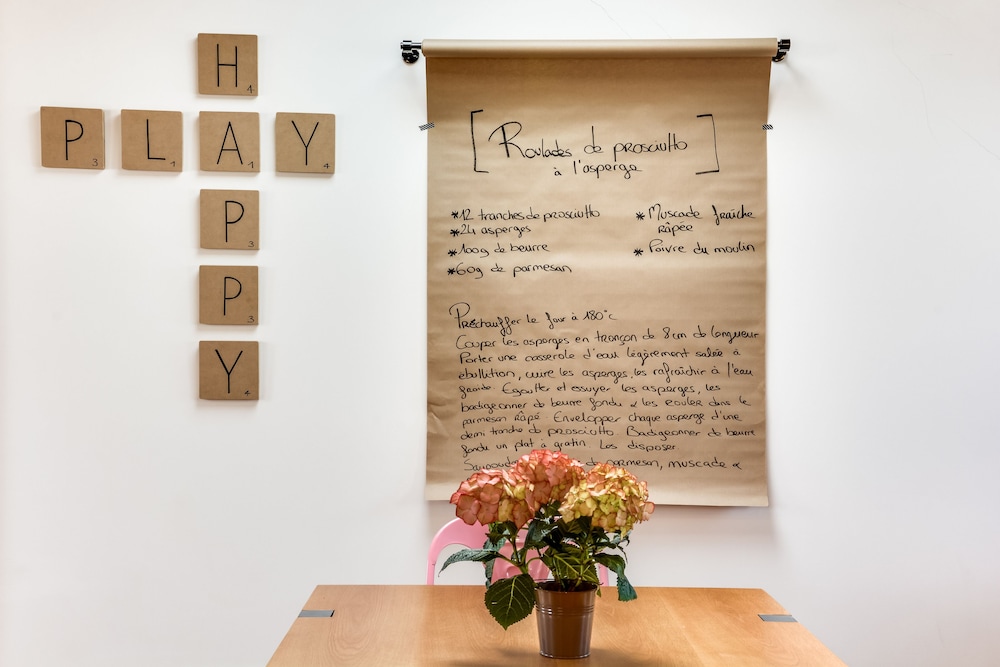 H 4
P 3 L 1 A 1 Y 4
P 3
P 3
Y 4
[Roulades de prosciutto]
à l'asperge
*12 tranches de prosciutto
*24 asperges
*100g de beurre
*60g de parmesan
*Muscade fraîche
râpée
*Poivre du moulin
Préchauffer le four à 180°c
Couper les asperges en tronçon de 8cm de longueur
Porter une casserole d'eau légèrement salée à
ébullition, cuire les asperges, les rafraîchir à l'eau
froide. Egoutter et essuyer les asperges, les
badigeonner de beurre fondu & les rouler dans le
parmesan râpé. Envelopper chaque asperge d'une
demi tranche de prosciutto. Badigeonner de beurre
fondu un plat à gratin. Les disposer.
de parmesan, muscade &